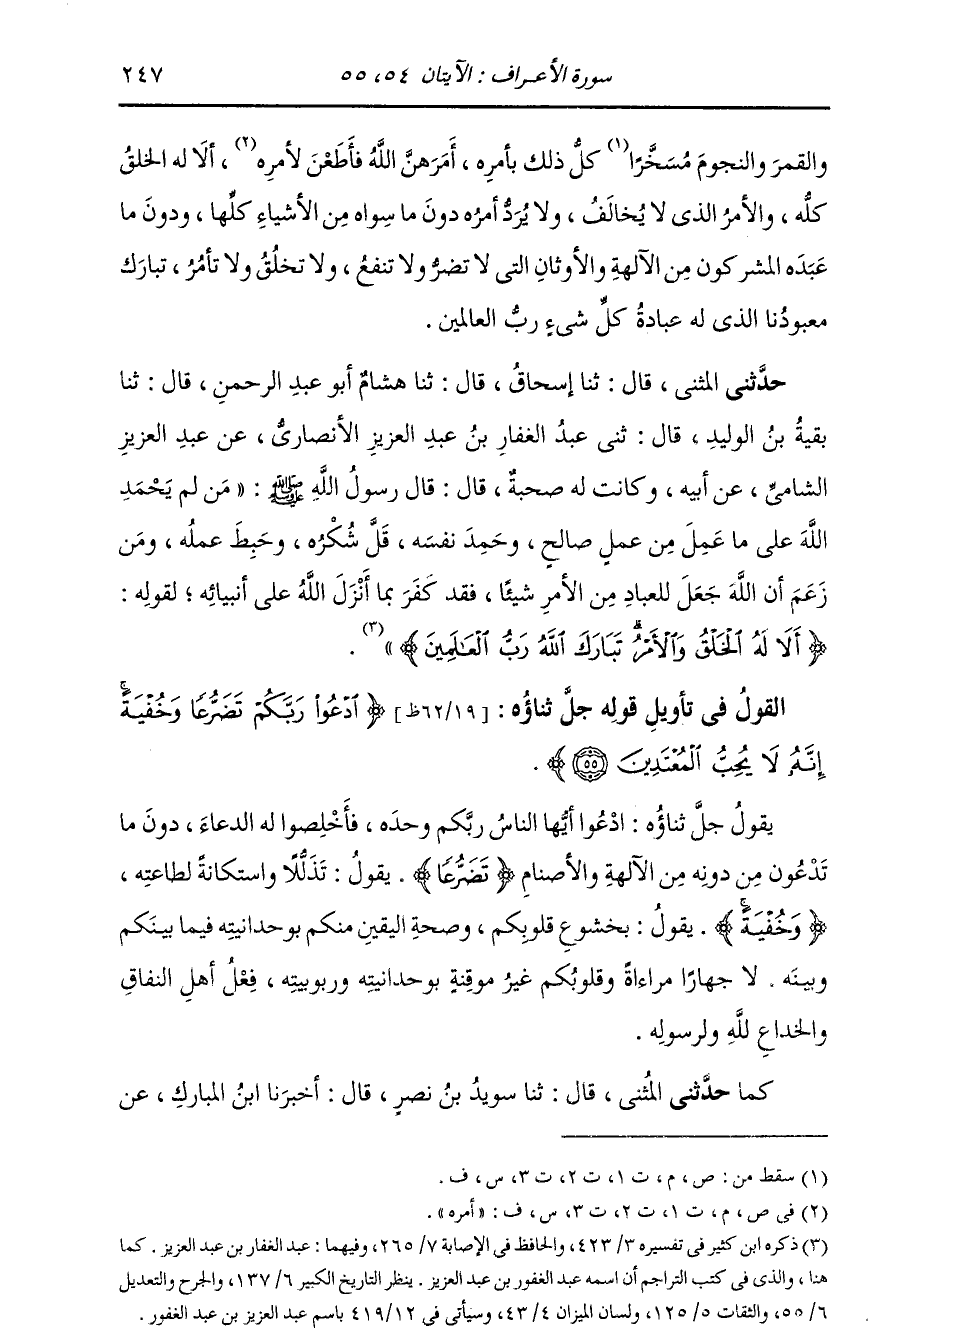 سورة الأعراف : الآيتان ٥٤، ٥٥ ٢٤٧
والقمرَ والنجومَ مُسَخَّرًا(١) كلُّ ذلك بأمرِه ، أَمَرَهنَّ اللَّهُ فأَطَعْنَ لأمرِه(٢) ، ألَا له الخلقُ
كلُّه ، والأمرُ الذى لا يُخالَفُ ، ولا يُرَدُّ أمرُه دونَ ما سواه مِن الأشياءِ كلِّها ، ودونَ ما
عَبَدَه المشركون مِن الآلهةِ والأوثانِ التى لا تضرُّ ولا تنفعُ ، ولا تخلُقُ ولا تأمُرُ ، تبارَك
معبودُنا الذى له عبادةُ كلِّ شىءٍ ربُّ العالمين .
حدَّثنى المثنى ، قال : ثنا إسحاقُ ، قال : ثنا هشامٌ أبو عبدِ الرحمنِ ، قال : ثنا
بقيةُ بنُ الوليدِ ، قال : ثنى عبدُ الغفارِ بنُ عبدِ العزيزِ الأنصارىُّ ، عن عبدِ العزيزِ
الشامىِّ ، عن أبيه ، وكانت له صحبةٌ ، قال : قال رسولُ اللَّهِ ﷺ : « مَن لم يَحْمَدِ
اللَّهَ على ما عَمِلَ مِن عملٍ صالحٍ ، وحَمِدَ نفسَه ، قَلَّ شُكْرُه ، وحَبِطَ عملُه ، ومَن
زَعَمَ أن اللَّهَ جَعَلَ للعبادِ مِن الأمرِ شيئًا ، فقد كَفَرَ بما أَنْزَلَ اللَّهُ على أنبيائِه ؛ لقولِه :
﴿ أَلَا لَهُ ٱلْخَلْقُ وَٱلْأَمْرُۗ تَبَارَكَ ٱللَّهُ رَبُّ ٱلْعَـٰلَمِينَ ﴾ »(٣) .
القولُ فى تأويلِ قولِه جلَّ ثناؤُه : [ ٦٢/١٩ظ ] ﴿ ٱدْعُوا۟ رَبَّكُمْ تَضَرُّعًا وَخُفْيَةًۚ
إِنَّهُۥ لَا يُحِبُّ ٱلْمُعْتَدِينَ ٥٥ ﴾ .
يقولُ جلَّ ثناؤُه : ادْعُوا أيُّها الناسُ ربَّكم وحدَه ، فأَخْلِصوا له الدعاءَ ، دونَ ما
تَدْعُون مِن دونِه مِن الآلهةِ والأصنامِ ﴿ تَضَرُّعًا ﴾ . يقولُ : تذَلُّلًا واستكانةً لطاعتِه ،
﴿ وَخُفْيَةًۚ ﴾ . يقولُ : بخشوعِ قلوبِكم ، وصحةِ اليقينِ منكم بوحدانيتِه فيما بينَكم
وبينَه . لا جهارًا مراءاةً وقلوبُكم غيرُ موقنةٍ بوحدانيتِه وربوبيتِه ، فِعْلُ أهلِ النفاقِ
والخداعِ للَّهِ ولرسولِه .
كما حدَّثنى المُثنى ، قال : ثنا سويدُ بنُ نصرٍ ، قال : أخبرَنا ابنُ المباركِ ، عن
(١) سقط من : ص ، م ، ت ١، ت ٢، ت ٣، س ، ف .
(٢) فى ص ، م ، ت ١، ت ٢، ت ٣، س ، ف : « أمره » .
(٣) ذكره ابن كثير فى تفسيره ٣/ ٤٢٣، والحافظ فى الإصابة ٧/ ٢٦٥، وفيهما : عبد الغفار بن عبد العزيز . كما
هنا ، والذى فى كتب التراجم أن اسمه عبد الغفور بن عبد العزيز . ينظر التاريخ الكبير ٦/ ١٣٧، والجرح والتعديل
٦/ ٥٥، والثقات ٥/ ١٢٥، ولسان الميزان ٤/ ٤٣، وسيأتى فى ٤١٩/١٢ باسم عبد العزيز بن عبد الغفور .